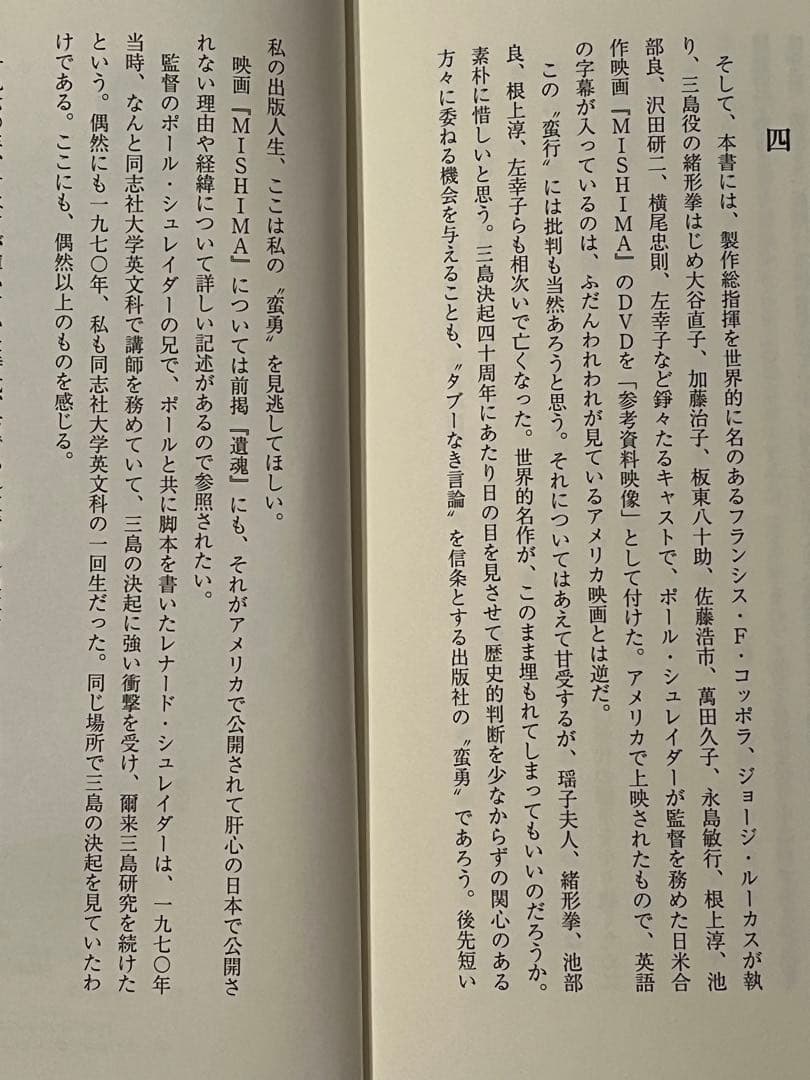 四
そして、本書には、製作総指揮を世界的に名のあるフランシス・F・コッポラ、ジョージ・ルーカスが執
り、三島役の緒形拳はじめ大谷直子、加藤治子、板東八十助、佐藤浩市、萬田久子、永島敏行、根上淳、池
部良、沢田研二、横尾忠則、左幸子など錚々たるキャストで、ポール・シュレイダーが監督を務めた日米合
作映画『MISHIMA』のDVDを「参考資料映像」として付けた。アメリカで上映されたもので、英語
の字幕が入っているのは、ふだんわれわれが見ているアメリカ映画とは逆だ。
この〝蛮行〟には批判も当然あろうと思う。それについてはあえて甘受するが、瑶子夫人、緒形拳、池部
良、根上淳、左幸子らも相次いで亡くなった。世界的名作が、このまま埋もれてしまってもいいのだろうか。
素朴に惜しいと思う。三島決起四十周年にあたり日の目を見させて歴史的判断を少なからずの関心のある
方々に委ねる機会を与えることも、〝タブーなき言論〟を信条とする出版社の〝蛮勇〟であろう。後先短い
私の出版人生、ここは私の〝蛮勇〟を見逃してほしい。
映画『MISHIMA』については前掲『遺魂』にも、それがアメリカで公開されて肝心の日本で公開さ
れない理由や経緯について詳しい記述があるので参照されたい。
監督のポール・シュレイダーの兄で、ポールと共に脚本を書いたレナード・シュレイダーは、一九七〇年
当時、なんと同志社大学英文科で講師を務めていて、三島の決起に強い衝撃を受け、爾来三島研究を続けた
という。偶然にも一九七〇年、私も同志社大学英文科の一回生だった。同じ場所で三島の決起を見ていたわ
けである。ここにも、偶然以上のものを感じる。